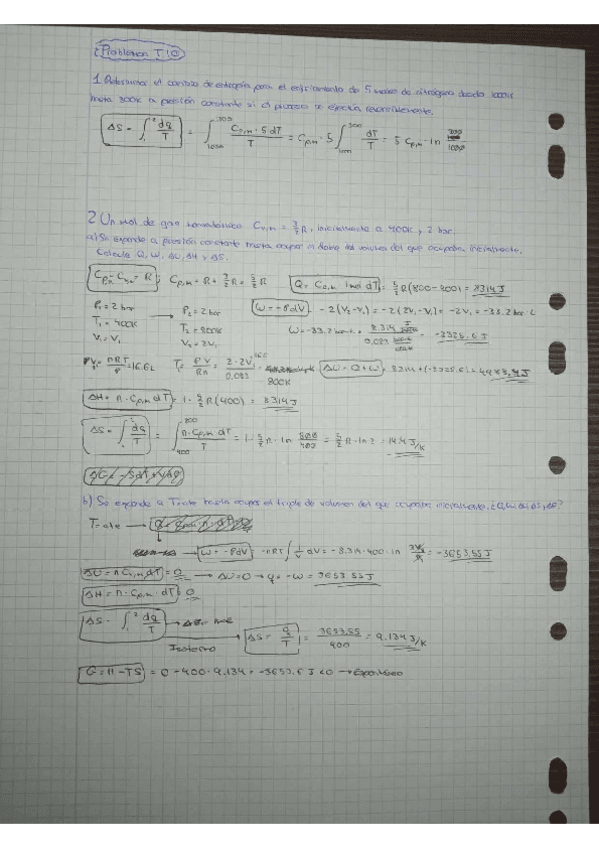 Problemas T10
1. Determine el cambio de entropía para el enfriamiento de 5 moles de nitrógeno desde 1000K
hasta 300K a presión constante si el proceso se ejecuta reversiblemente.
ΔS = ∫₁² dq/T = ∫₁₀₀₀³⁰⁰ Cp,m · 5 dT / T = Cp,m · 5 ∫₁₀₀₀³⁰⁰ dT/T = 5 Cp,m · ln 300/1000
2. Un mol de gas monoatómico Cv,m = 3/2 R, inicialmente a 400K y 2 bar.
a) Se expande a presión constante hasta ocupar el doble del volumen del que ocupaba inicialmente.
Calcula Q, W, ΔU, ΔH y ΔS.
Cp,m - Cv,m = R ; Cp,m = R + 3/2 R = 5/2 R
Q = Cp,m 1mol dT = 5/2 R (800-400) = 8314 J
P₁ = 2 bar → P₂ = 2 bar
T₁ = 400K T₂ = 800K
V₁ = V₁ V₂ = 2V₁
W = -PdV - 2(V₂-V₁) = -2(2V₁-V₁) = -2V₁ = -33.2 bar·L
W = -33.2 bar·L · 8314 J / 0.083 = -3325.6 J
V₁ = nRT/P = 16.6L T₂ = P·V/Rn = 2·2V/0.083 = 800K
ΔU = Q + W = 8314 + (-3325.6) = 4988.4 J
ΔH = n·Cp,m dT = 1·5/2 R(400) = 8314 J
ΔS = ∫₁² dq/T = ∫₄₀₀⁸⁰⁰ n·Cp,m dT / T = 1·5/2 R · ln 800/400 = 5/2 R·ln 2 = 14.4 J/K
b) Se expande a T=cte hasta ocupar el triple de volumen del que ocupaba inicialmente. ¿Q, W, ΔU, ΔH, ΔS, ΔG?
T=cte →
W = -PdV - nRT ∫ 1/V dV = -8.314·400·ln 3V₁/V₁ = -3653.55 J
ΔU = n Cv,m dT = 0 → ΔU = 0 → q = -W = 3653.55 J
ΔH = n·Cp,m·dT = 0
ΔS = ∫₁² dq/T
Isotermo → ΔS = q/T = 3653.55/400 = 9.134 J/K
G = H - TS = 0 - 400·9.134 = -3653.6 J < 0 → Espontáneo